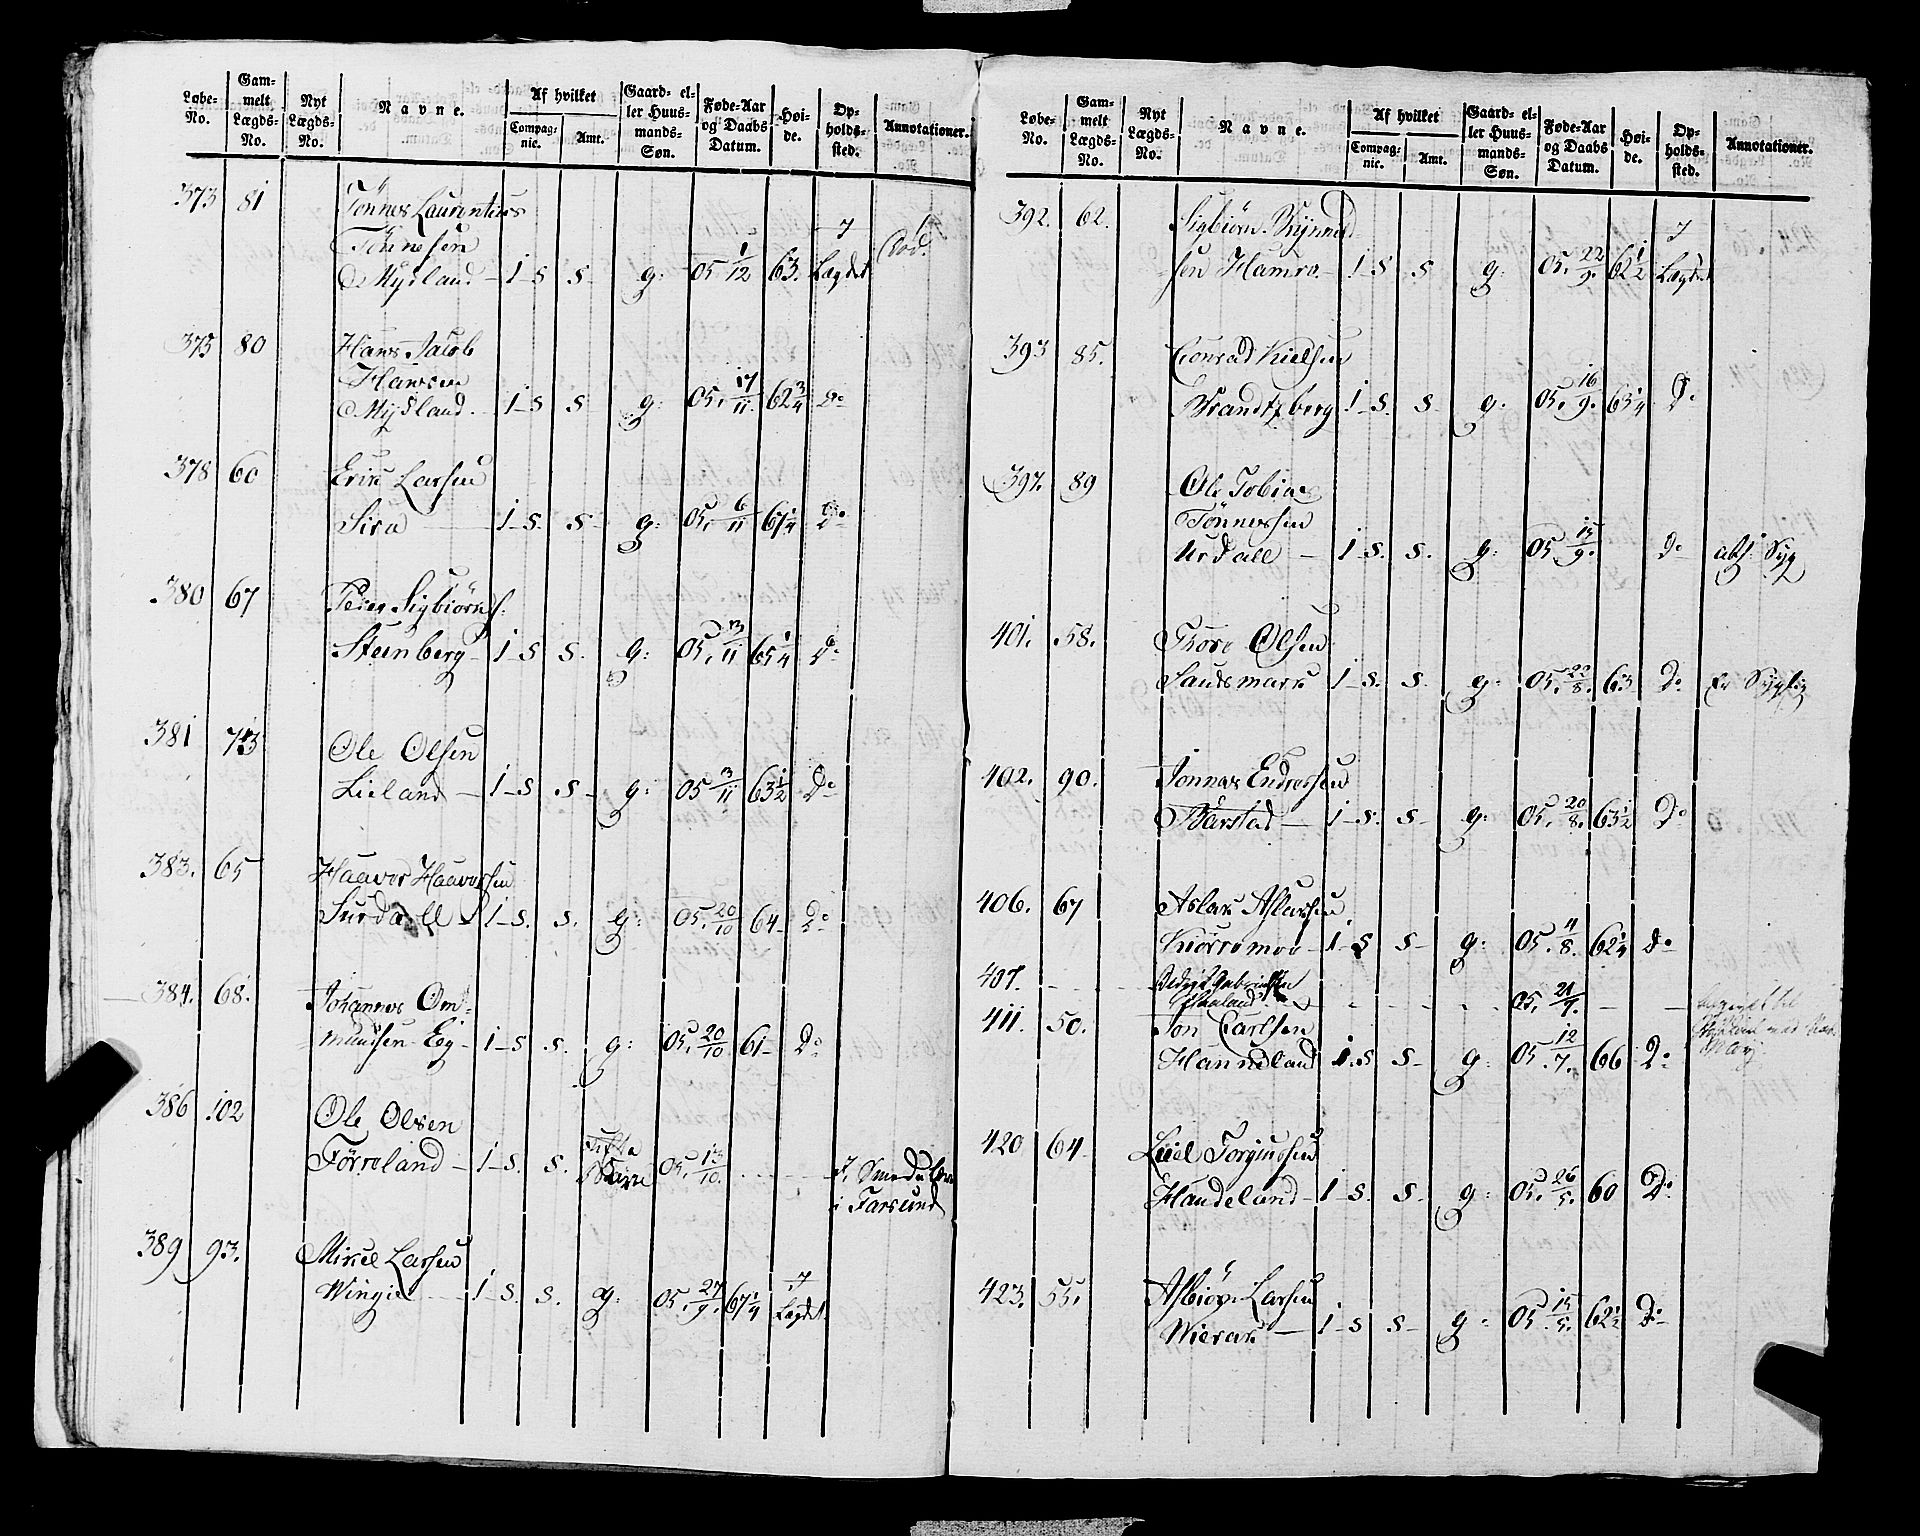 Løbe-No. Gammelt Lægds-No. Nyt Lægds-No. Navne. Af hvilket Compagnie. Amt. Gaard- eller Huusmands-Søn. Føde-Aar og Daabs Datum. Høide. Opholdssted. Annotationer.
373 81 Tönnes Laurentius
Tönnesen
Mydland 1 S S. g: 05 1/12 63. I Lægdet
375 80 Hans Jacob
Hansen
Mydland. 1 S S g. 05. 17/11. 62 3/4 Do
378 60 Erik Larsen
Sira 1 S. S g: 05. 6/11 67 1/4 Do
380 67 Peder Sigbiörns.
Steenberg 1 S S. g: 05. 3/11 65 1/4 Do
381 73 Ole Olsen
Lieland 1 S S g: 05 3/11 63 1/2 Do
383. 65 Haavor Haavorsen
Surdall 1 S. S. g: 05. 20/10 64 Do
384. 68. Johannes Om-
mundsen Eeg 1 S S. g: 05. 20/10 61 Do
386 102 Ole Olsen
Förreland 1 S. S. 05. 13/10.
i Farsund
389 93. Mikel Larsen
1 S. S. g: 05. 27/9. 67 1/4 I Lægdet.
Løbe-No. Gammelt Lægds-No. Nyt Lægds-No. Navne. Af hvilket Compagnie. Amt. Gaard- eller Huusmands-Søn. Føde-Aar og Daabs Datum. Høide. Opholdssted. Annotationer.
392. 62. Sigbiörn
sen Hamra 1 S S g: 05. 22/9. 62 1/2 I Lægdet
393 85. Conrad Kielsen
Brandtzberg 1 S. S g. 05. 16/9. 63 1/4 Do
397. 89 Ole Tobias
Tönnessen
Urdall 1 S. S. g: 05. 15/9. Do
401. 58. Thore Olsen
Sandsmark 1 S. S. g. 05. 22/8. 63 Do Er Syglig
402. 90. Jonnas Endresen
Barstad 1 S. S g: 05. 20/8. 63 1/2 Do
406. 67 Aslak Aslaksen
Kiörremoe 1 S S g: 05. 4/8. 62 1/4 Do
407. Gabrielsen
05. 21/7.
411. 50. Jon Carlsen
Hanneland 1 S S g: 05 12/7. 66 Do
420 64 Torgiussen
Handeland 1 S. S. g: 05. 26/5. 60 Do
423. 55. Asbiörn Larsen
1 S S g: 05 15/5. 62 1/2 Do